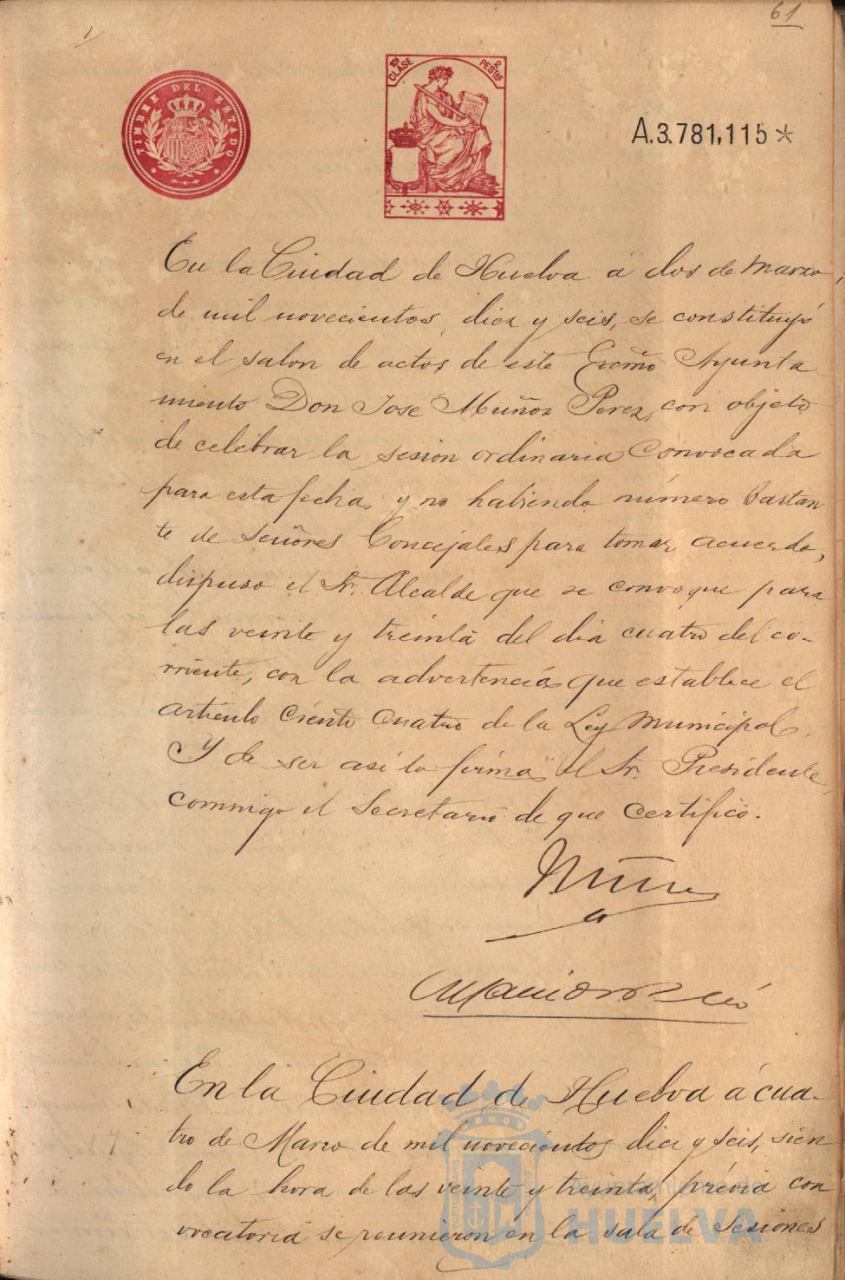 61
TIMBRE DEL ESTADO
10ª CLASE 2 PESTAS
A.3.781,115*
En la Ciudad de Huelva á dos de Marzo,
de mil novecientos diez y seis, se constituyó
en el salon de actos de este Excmo Ayunta
miento Don Jose Muñoz Perez, con objeto
de celebrar la sesion ordinaria Convocada
para esta fecha, y no habiendo número bastan
te de Señores Concejales para tomar acuerdo,
dispuso el Sr. Alcalde que se convoque para
las veinte y treinta del dia cuatro del co-
rriente, con la advertencia que establece el
artículo ciento cuatro de la Ley Municipal.
Y de ser así lo firma el Sr. Presidente,
conmigo el Secretario de que certifico.
En la Ciudad de Huelva á cua-
tro de Marzo de mil novecientos diez y seis, sien
do la hora de las veinte y treinta, prévia con
vocatoria se reunieron en la sala de Sesiones
Ayuntamiento de
HUELVA